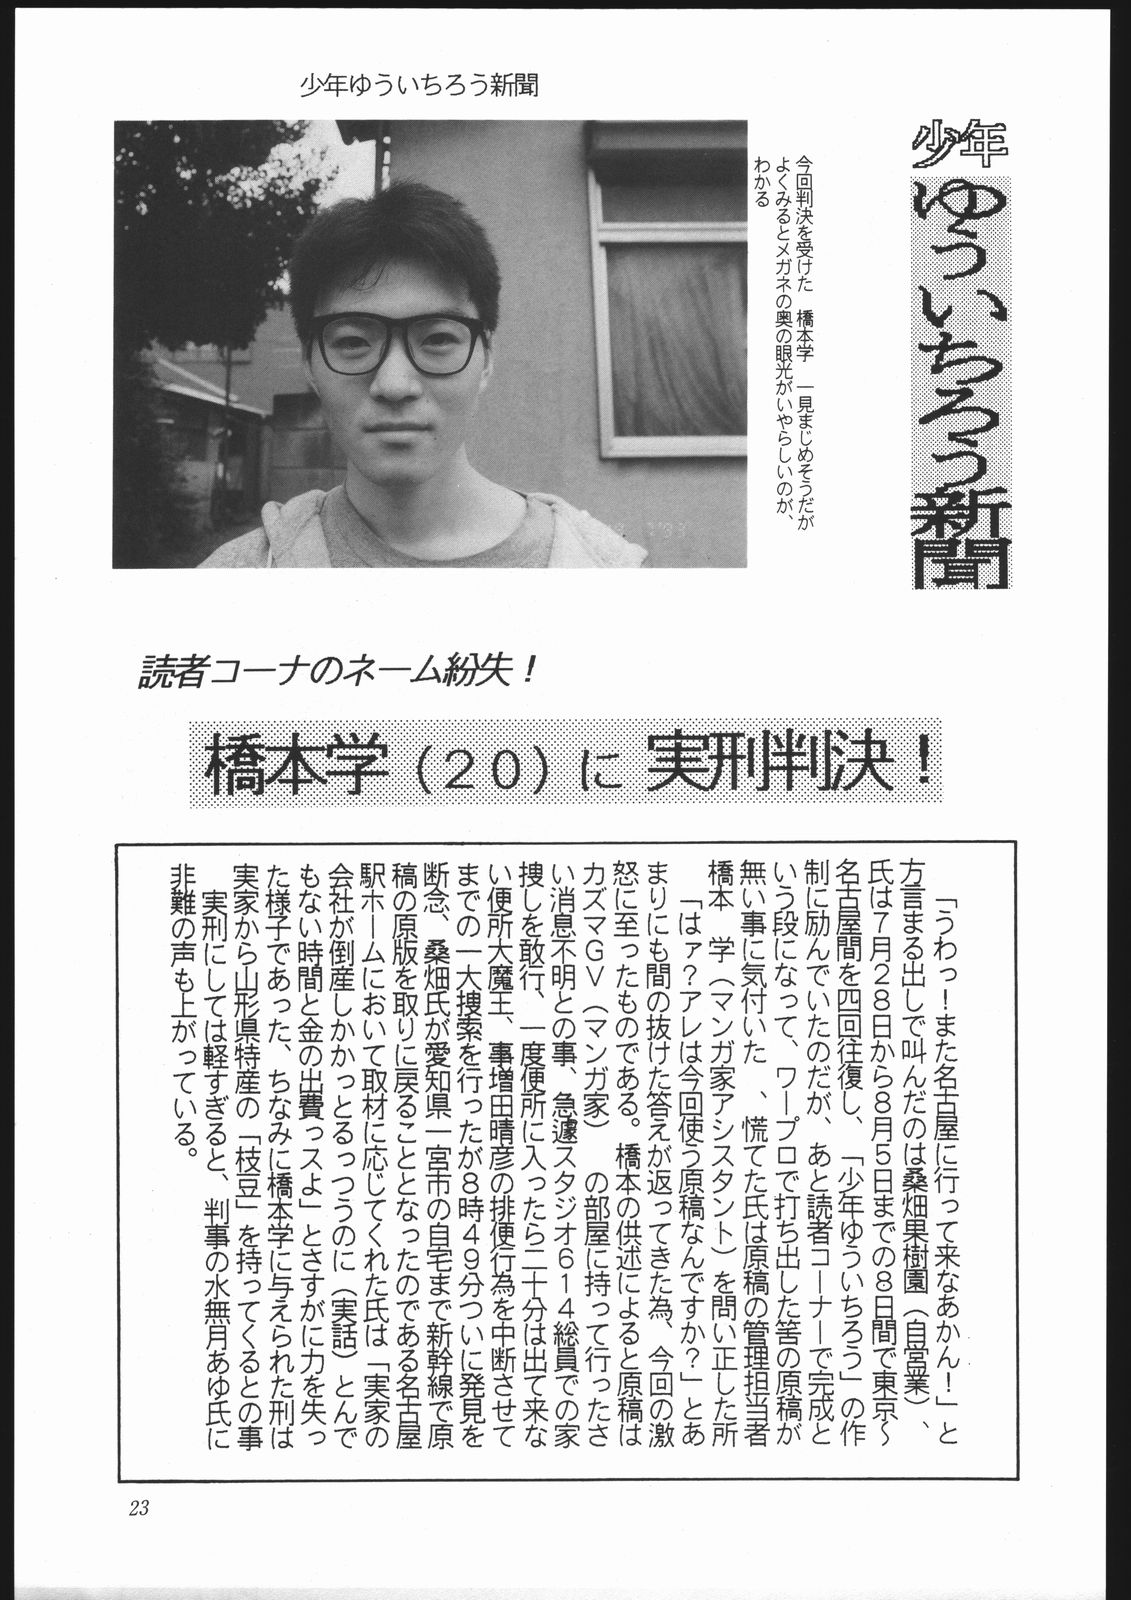 少年ゆういちろう新聞
少年ゆういちろう新聞
今回判決を受けた　橋本学　一見まじめそうだが
よくみるとメガネの奥の眼光がいやらしいのが、
わかる
読者コーナのネーム紛失！
橋本学（２０）に 実刑判決！
「うわっ！また名古屋に行って来なあかん！」と
方言まる出しで叫んだのは桑畑果樹園（自営業）、
氏は７月２８日から８月５日までの８日間で東京～
名古屋間を四回往復し、「少年ゆういちろう」の作
制に励んでいたのだが、あと読者コーナーで完成と
いう段になって、ワープロで打ち出した筈の原稿が
無い事に気付いた　、慌てた氏は原稿の管理担当者
橋本　学（マンガ家アシスタント）を問い正した所
「はァ？アレは今回使う原稿なんですか？」とあ
まりにも間の抜けた答えが返ってきた為、今回の激
怒に至ったものである。橋本の供述によると原稿は
カズマＧＶ（マンガ家）　の部屋に持って行ったさ
い消息不明との事、急遽スタジオ６１４総員での家
捜しを敢行、一度便所に入ったら二十分は出て来な
い便所大魔王、事増田晴彦の排便行為を中断させて
までの一大捜索を行ったが８時４９分ついに発見を
断念、桑畑氏が愛知県一宮市の自宅まで新幹線で原
稿の原版を取りに戻ることとなったのである名古屋
駅ホームにおいて取材に応じてくれた氏は「実家の
会社が倒産しかかっとるっつうのに（実話）とんで
もない時間と金の出費っスよ」とさすがに力を失っ
た様子であった、ちなみに橋本学に与えられた刑は
実家から山形県特産の「枝豆」を持ってくるとの事
実刑にしては軽すぎると、判事の水無月あゆ氏に
非難の声も上がっている。
23